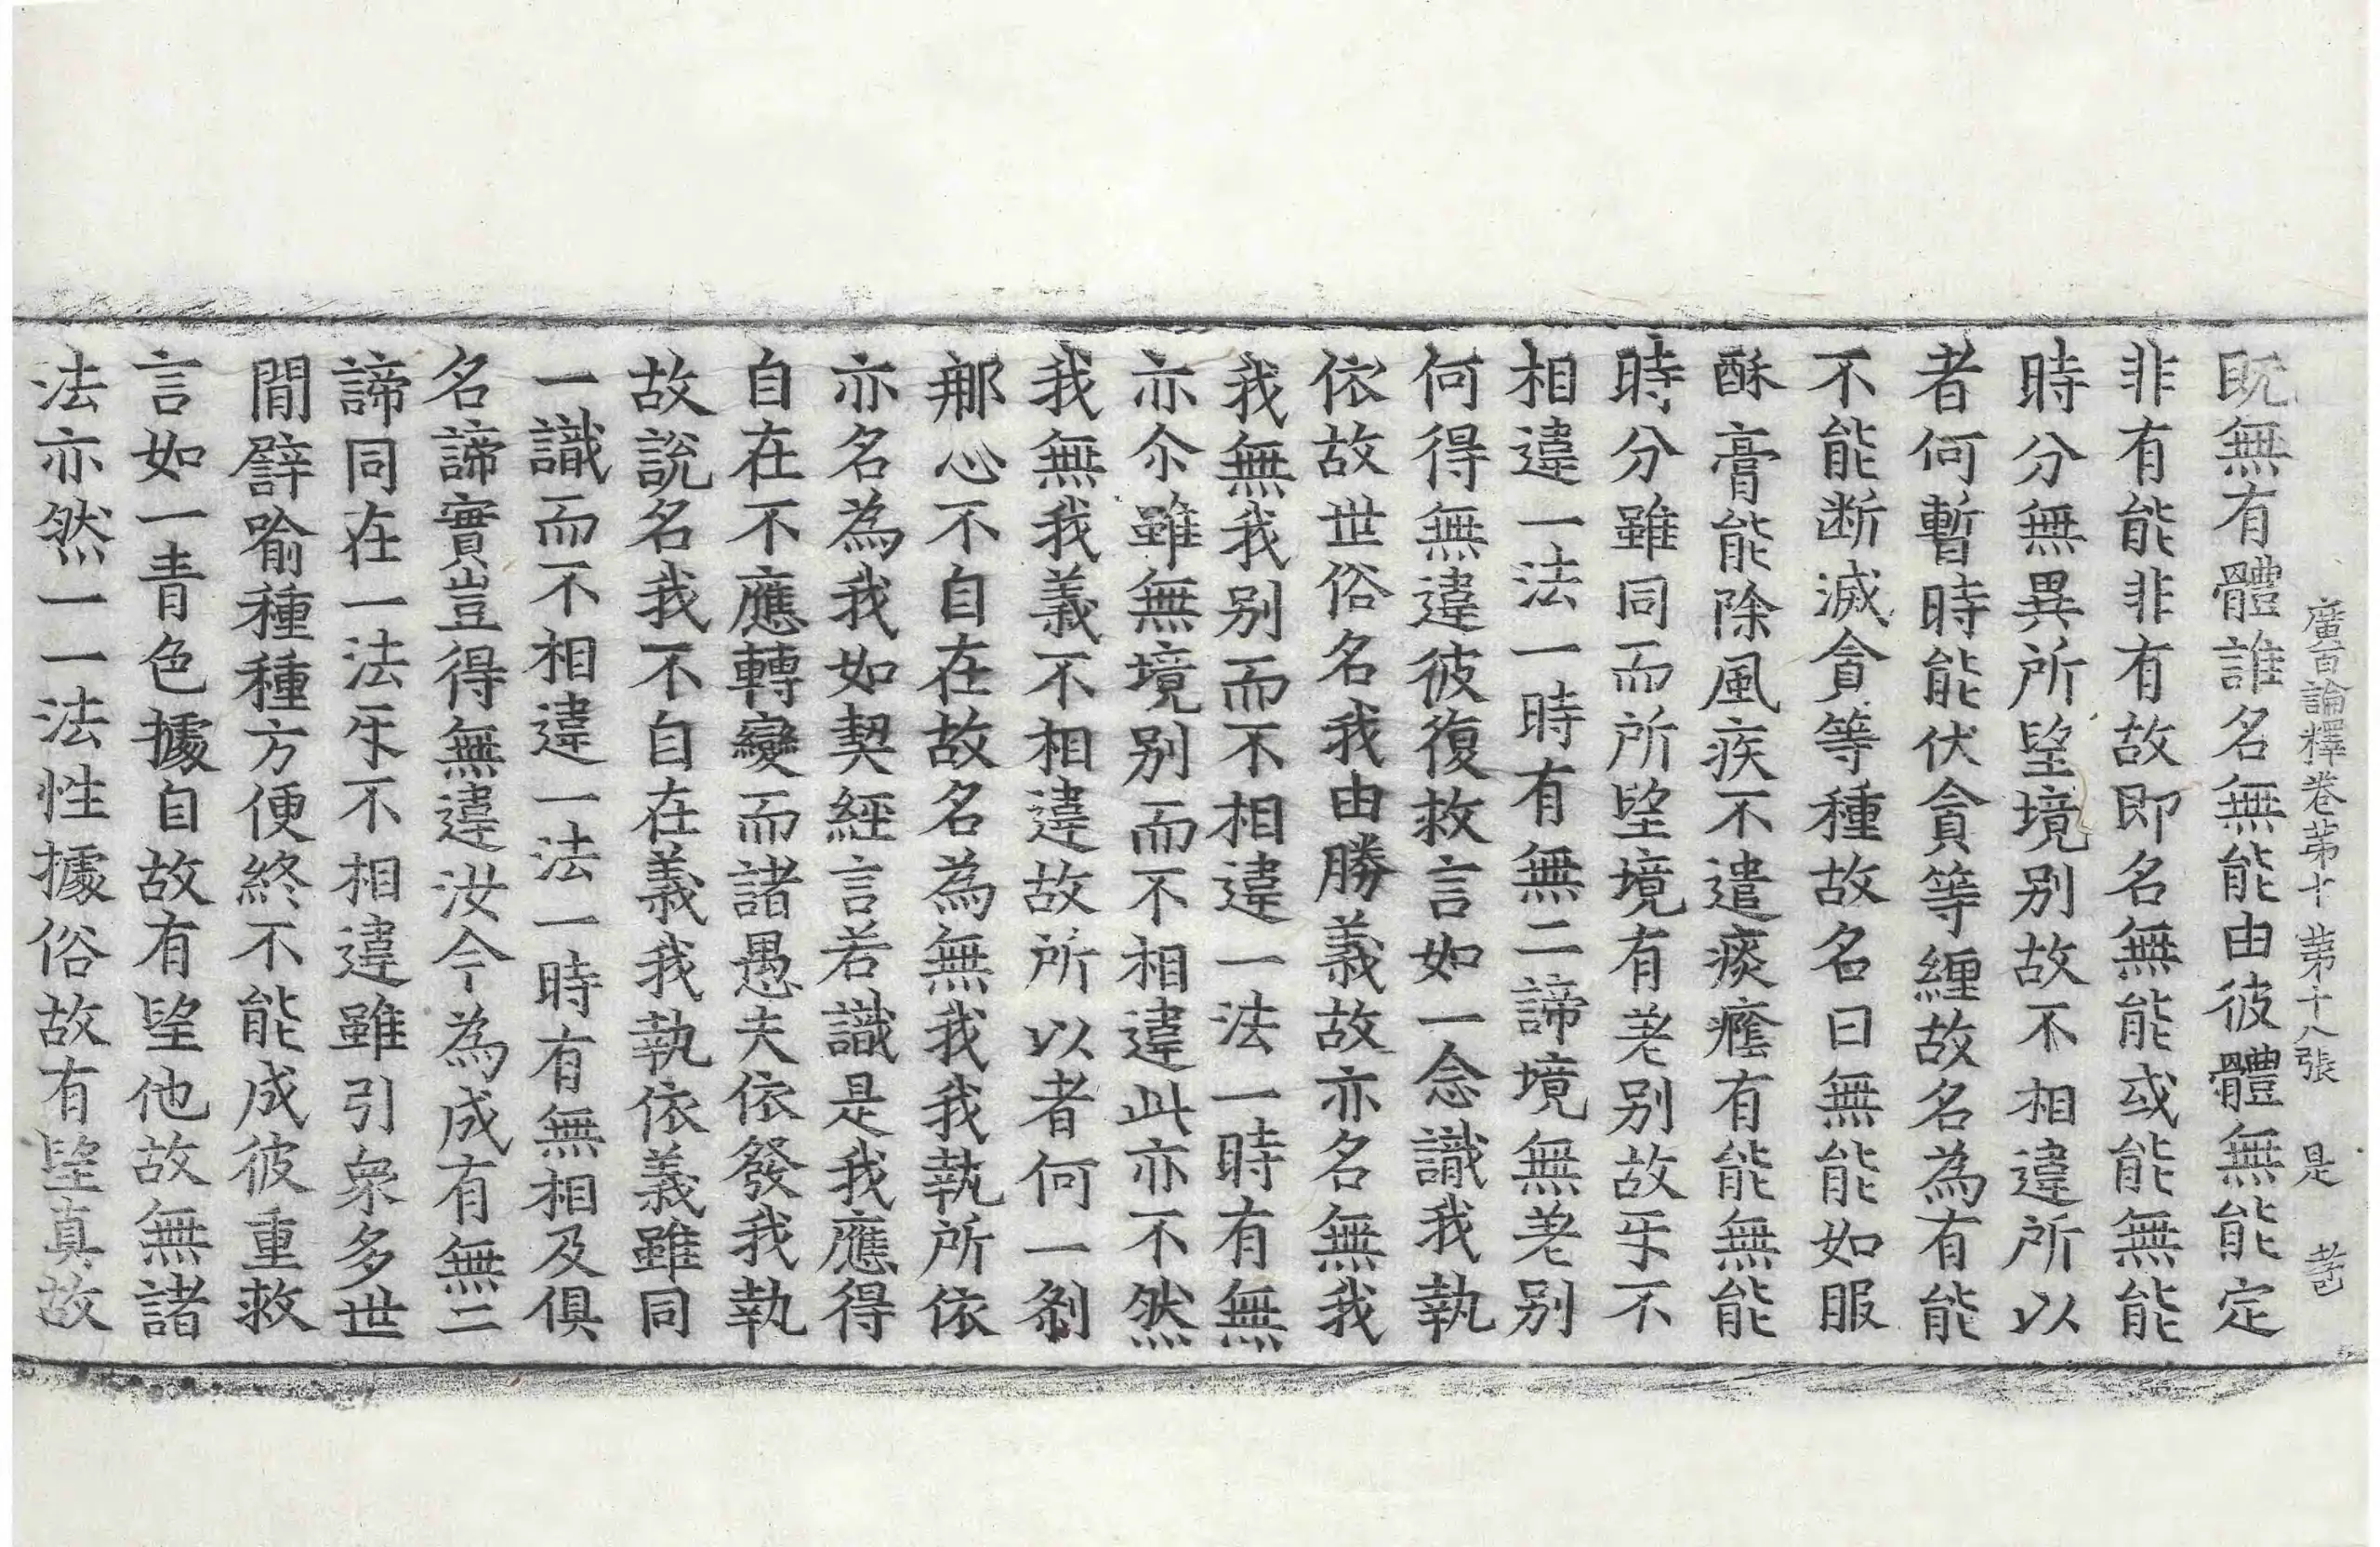 廣百論釋卷第十 第十八張 是
既無有體誰名無能由彼體無能定
非有能非有故即名無能或能無能
時分無異所望境別故不相違所以
者何暫時能伏貪等纏故名為有能
不能断滅貪等種故名曰無能如服
酥膏能除風疾不遣痰癊有能無能
時分雖同而所望境有差别故牙不
相違一法一時有無二諦境無差别
何得無違彼復救言如一念識我執
依故世俗名我由勝義故亦名無我
我無我别而不相違一法一時有無
亦尒雖無境别而不相違此亦不然
我無我義不相違故所以者何一剎
那心不自在故名為無我我執所依
亦名為我如契經言若識是我應得
自在不應轉變而諸愚夫依發我執
故說名我不自在義我執依義雖同
一識而不相違一法一時有無相及俱
名諦實豈得無違汝今為成有無二
諦同在一法牙不相違雖引衆多世
間譬喻種種方便終不能成彼重救
言如一青色據自故有望他故無諸
法亦然一一法性據俗故有望真故